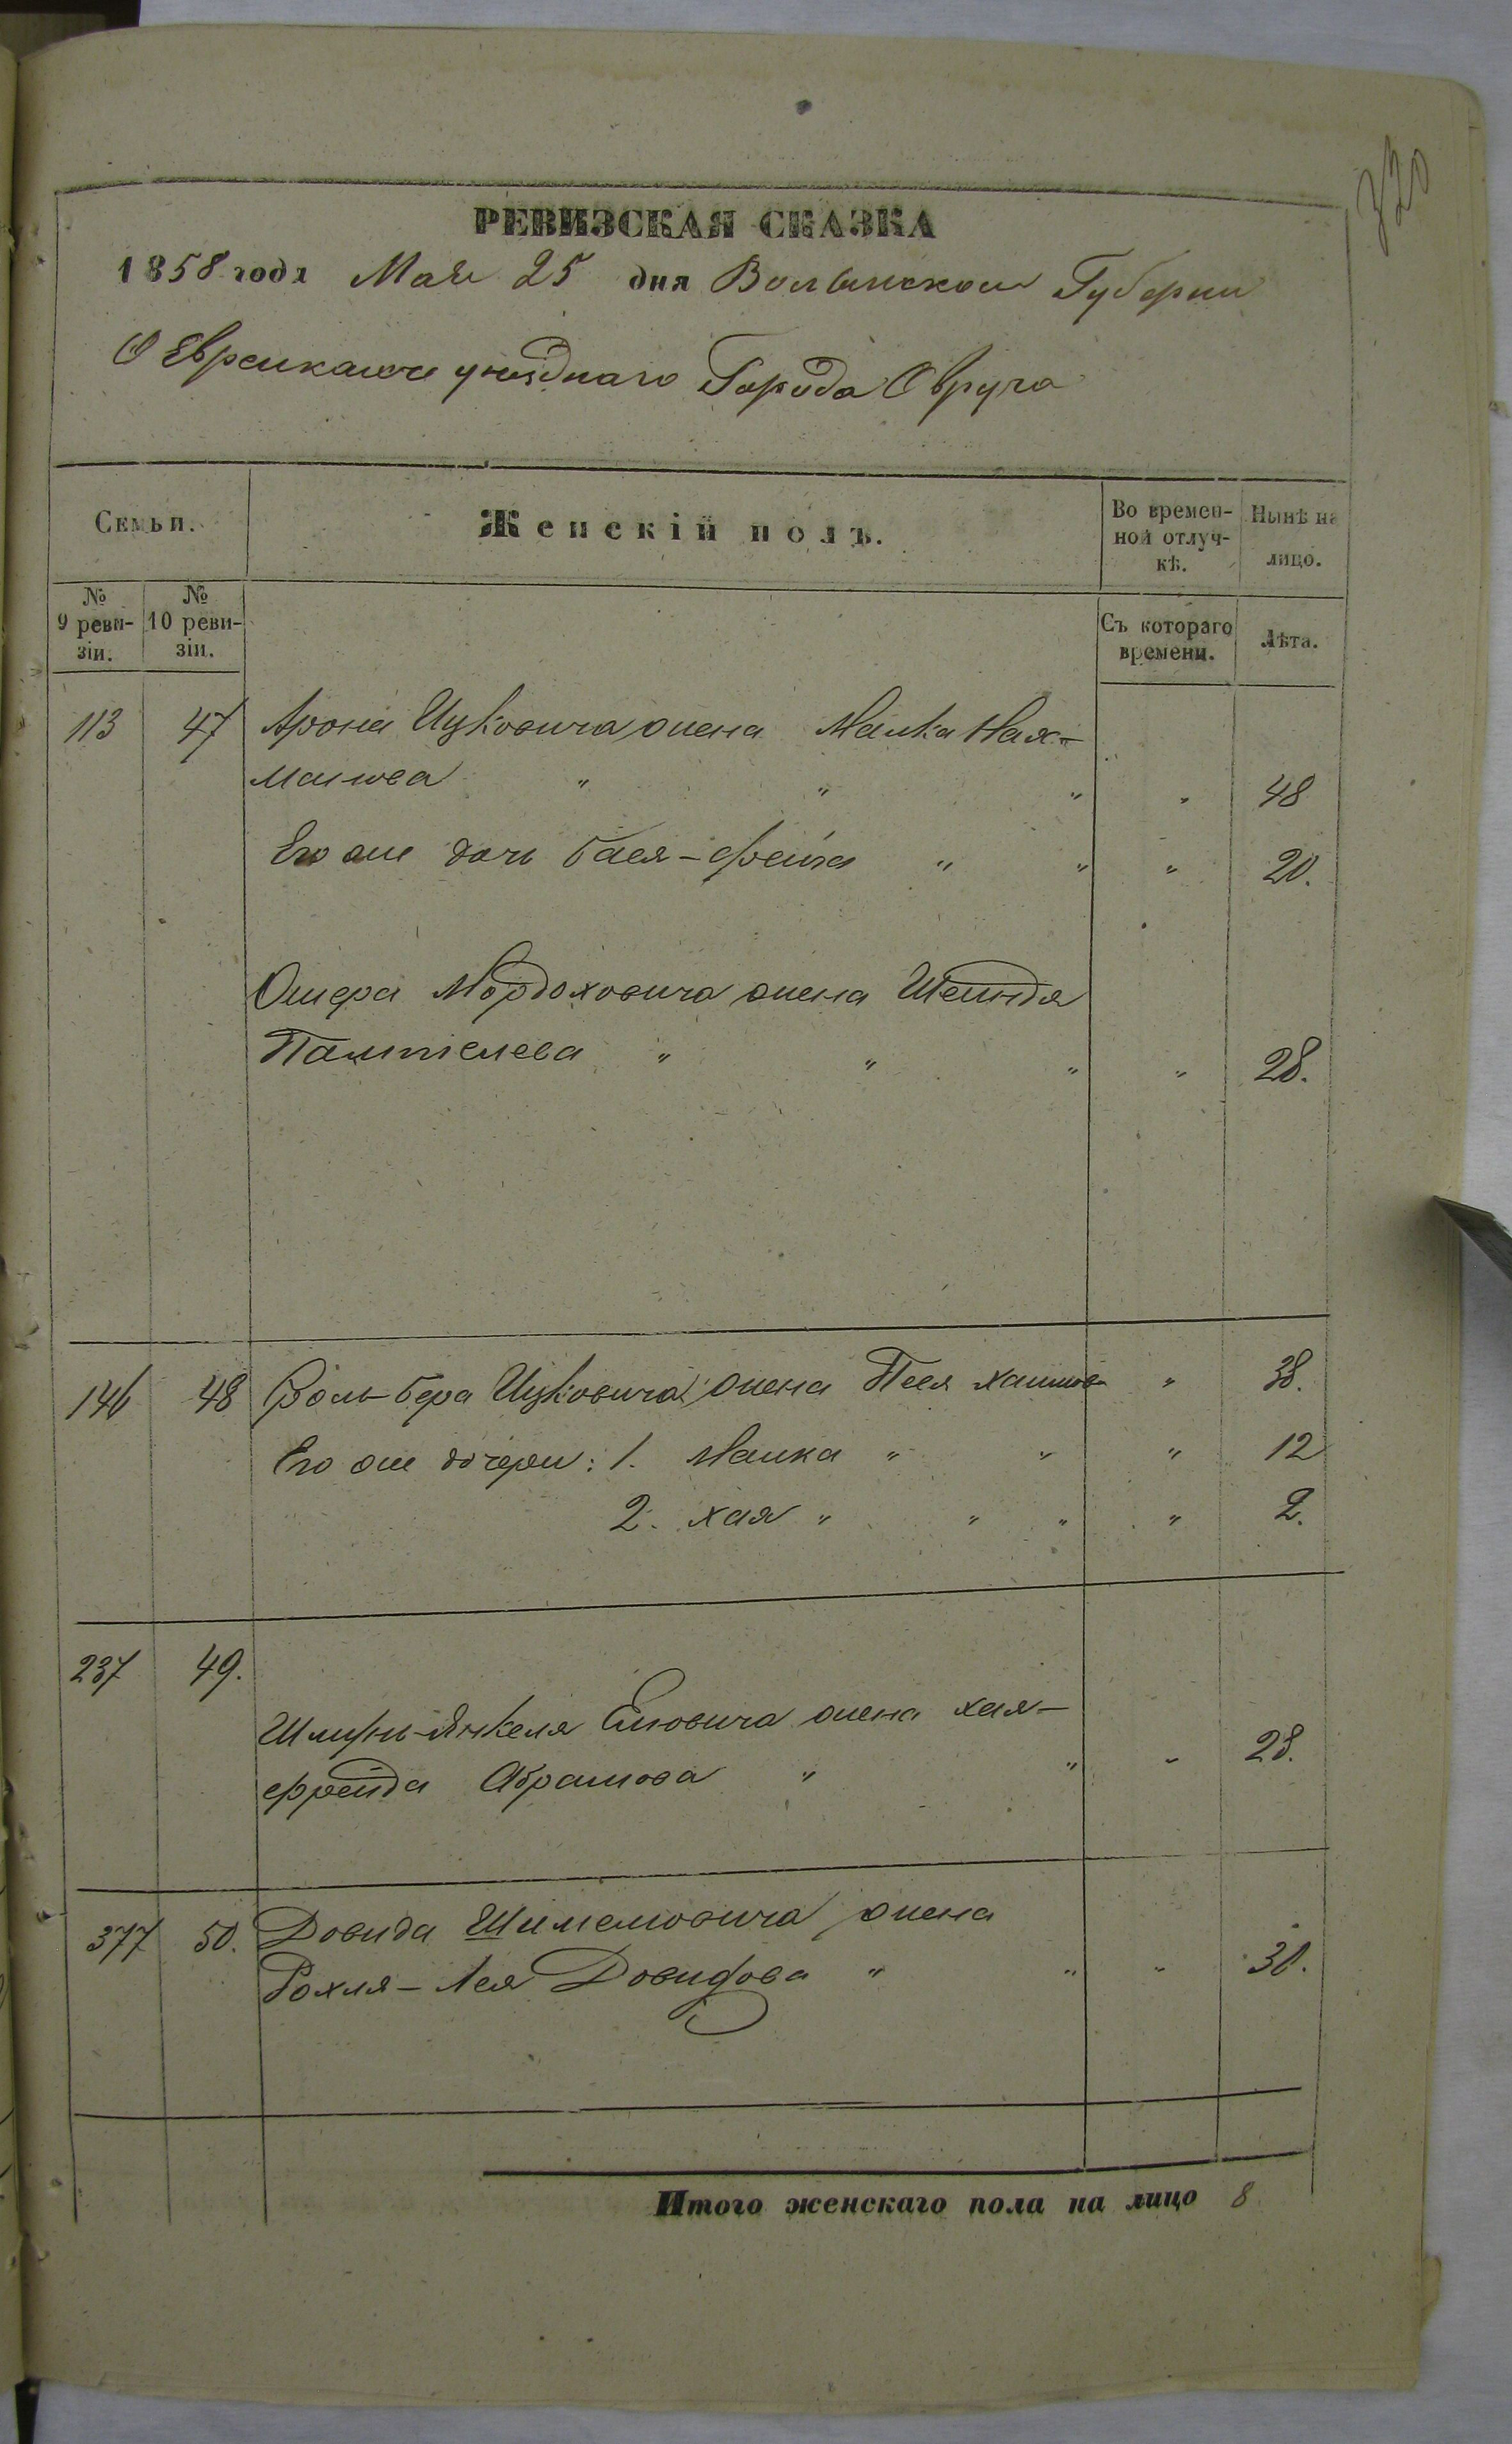 320
РЕВИЗСКАЯ СКАЗКА
1858 года Мая 25 дня Волынской Губернии
О Еврейкахъ уезднаго Города Овруча
Семьи.
Женскій полъ.
Во времен-
ной отлуч-
кѣ.
Нынѣ на
лицо.
№
9 реви-
зіи.
№
10 реви-
зіи.
Съ котораго
времени.
Лѣта.
113 47 Арона Ицковича жена Малка Нах-
манова " " " " 48
Его же дочь Бася-Фейга " " " 20.
Ошера Мордоховича жена Шейндя
" " " " 28.
146 48 Воль-Бера Ицковича жена Песя Хаимов " 38.
Его же дочери: 1. Малка " " " 12
2. Хая " " " " 2.
237 49.
Янкеля жена Хая-
Фрейда Абрамова " " " 28.
377 50. Довида Шимелиовича жена
Рохля-Лея Довидова " " " 30.
Итого женскаго пола на лицо 8